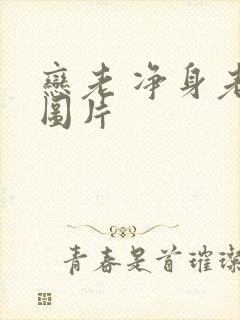 戀老净身老
圖片
青春是首璀璨